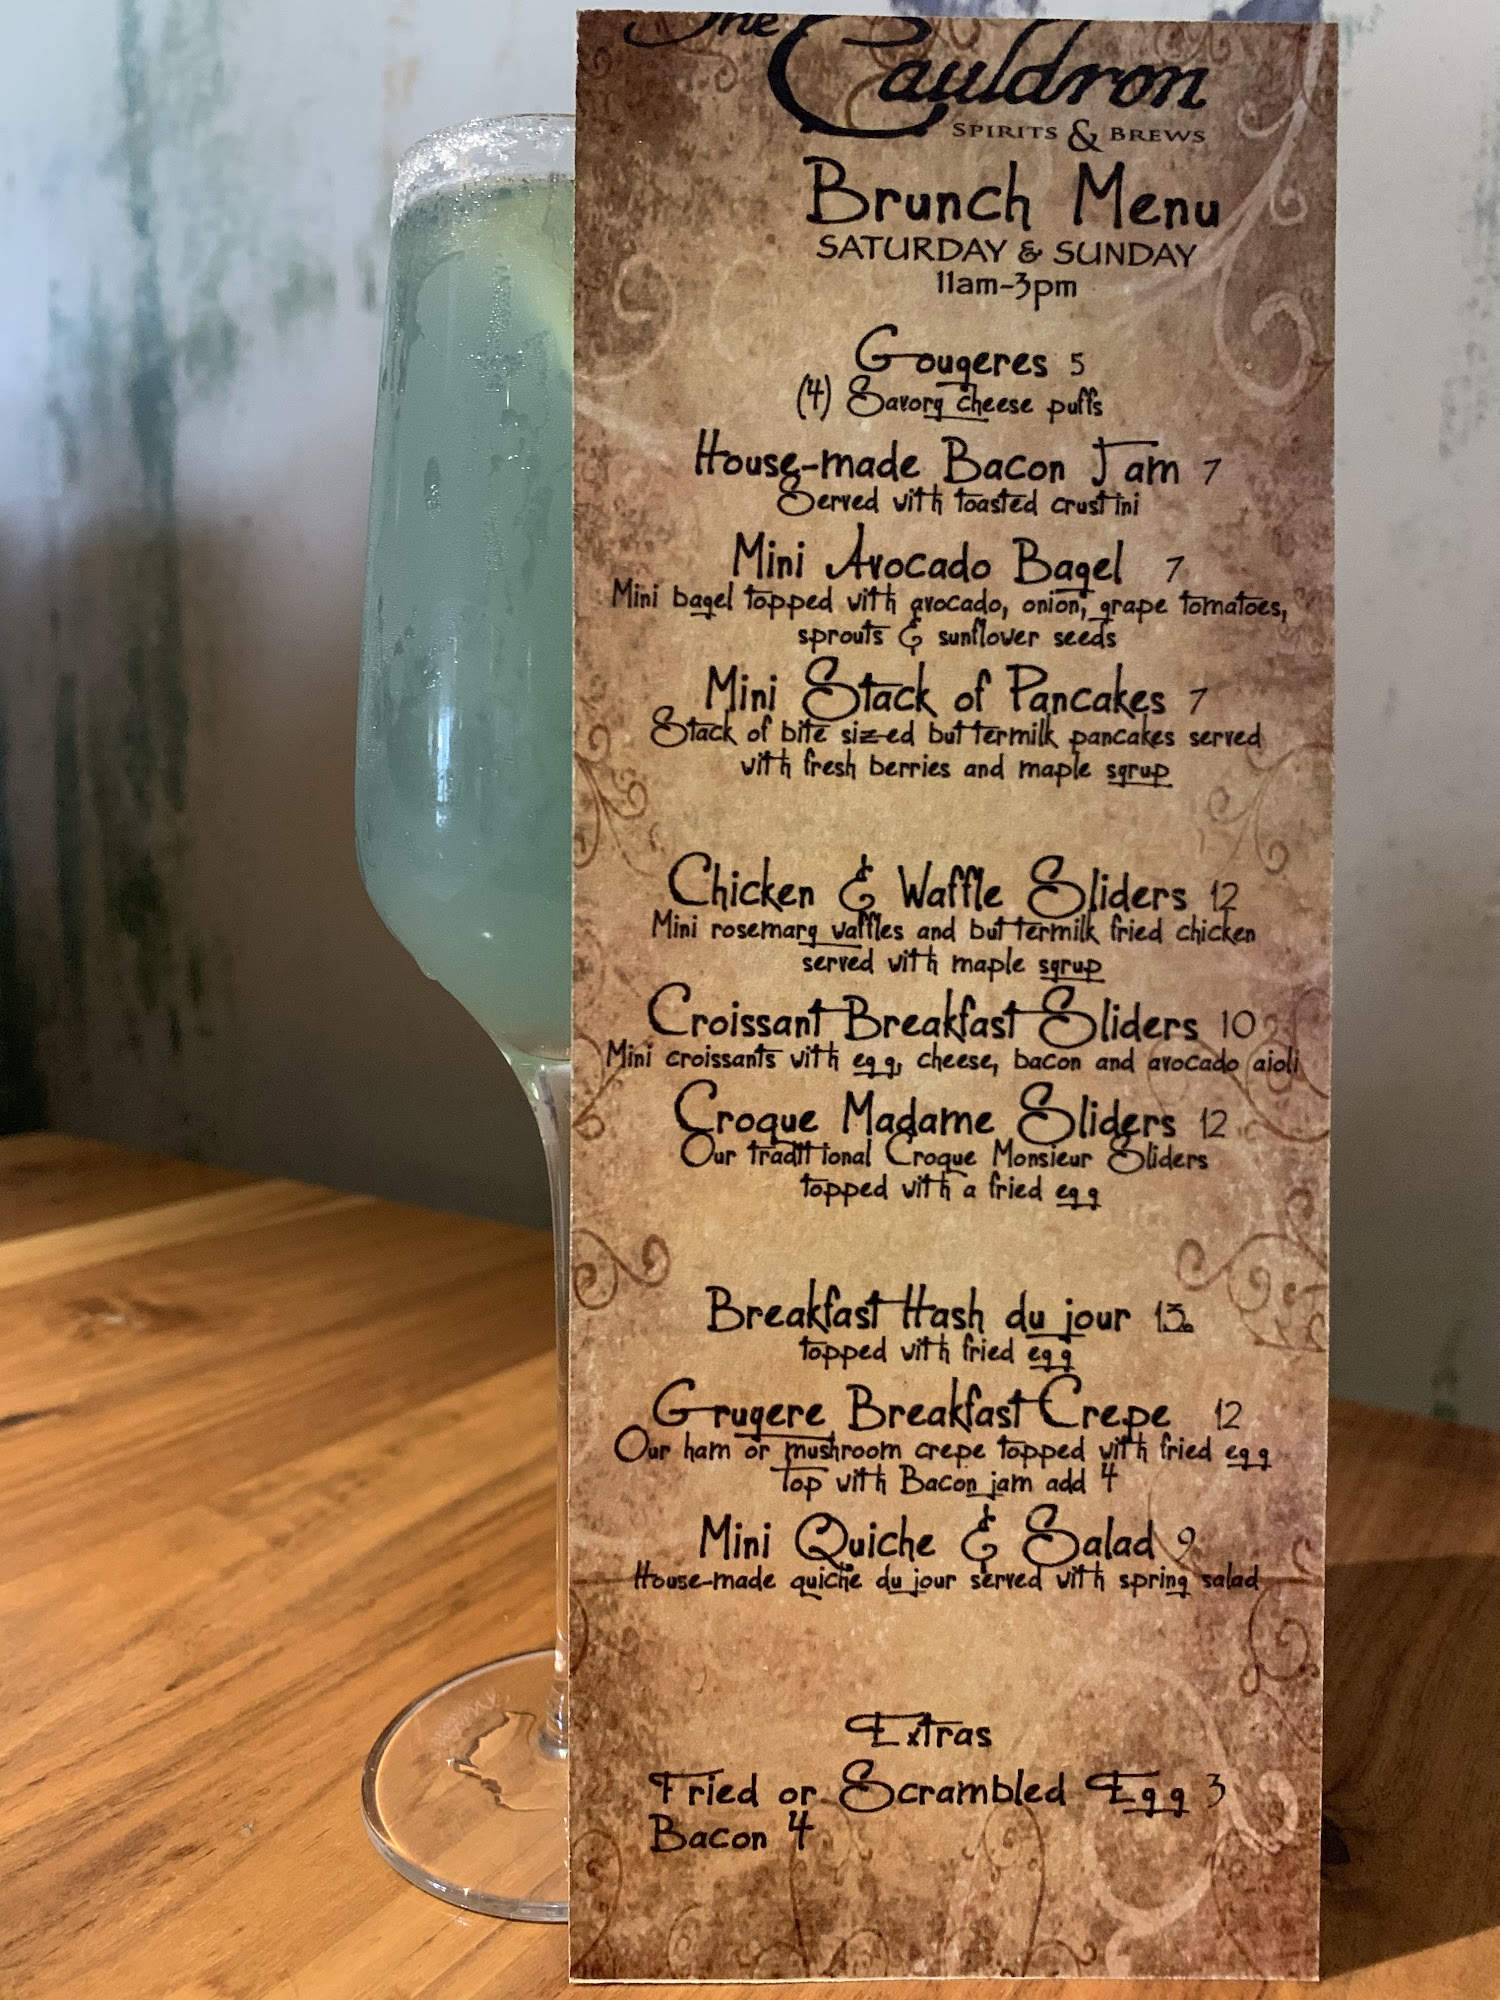 The Cauldron
SPIRITS & BREWS
Brunch Menu
SATURDAY & SUNDAY
11am-3pm
Gougeres 5
(4) Savory cheese puffs
House-made Bacon Jam 7
Served with toasted crustini
Mini Avocado Bagel 7
Mini bagel topped with avocado, onion, grape tomatoes,
sprouts & sunflower seeds
Mini Stack of Pancakes 7
Stack of bite sized buttermilk pancakes served
with fresh berries and maple syrup
Chicken & Waffle Sliders 12
Mini rosemary waffles and buttermilk fried chicken
served with maple syrup
Croissant Breakfast Sliders 10
Mini croissants with egg, cheese, bacon and avocado aioli
Croque Madame Sliders 12
Our traditional Croque Monsieur Sliders
topped with a fried egg
Breakfast Hash du jour 13
topped with fried egg
Gruyere Breakfast Crepe 12
Our ham or mushroom crepe topped with fried egg
Top with Bacon jam add 4
Mini Quiche & Salad 9
House-made quiche du jour served with spring salad
Extras
Fried or Scrambled Egg 3
Bacon 4